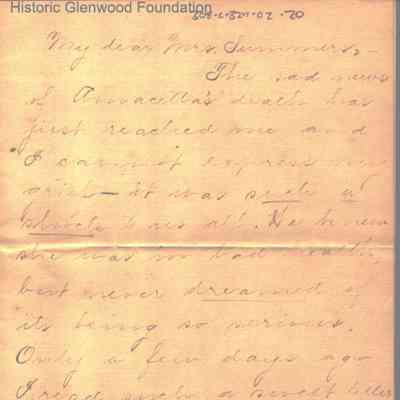 Historic Glenwood Foundation
My dear Mrs. Summers,-
The sad news
of Annacetta's death has
just reached me and
I cannot express my
grief - it was such a
shock to us all. We knew
she was in bad health,
but never dreamed of
its being so serious.
Only a few days ago
I read such a sweet letter